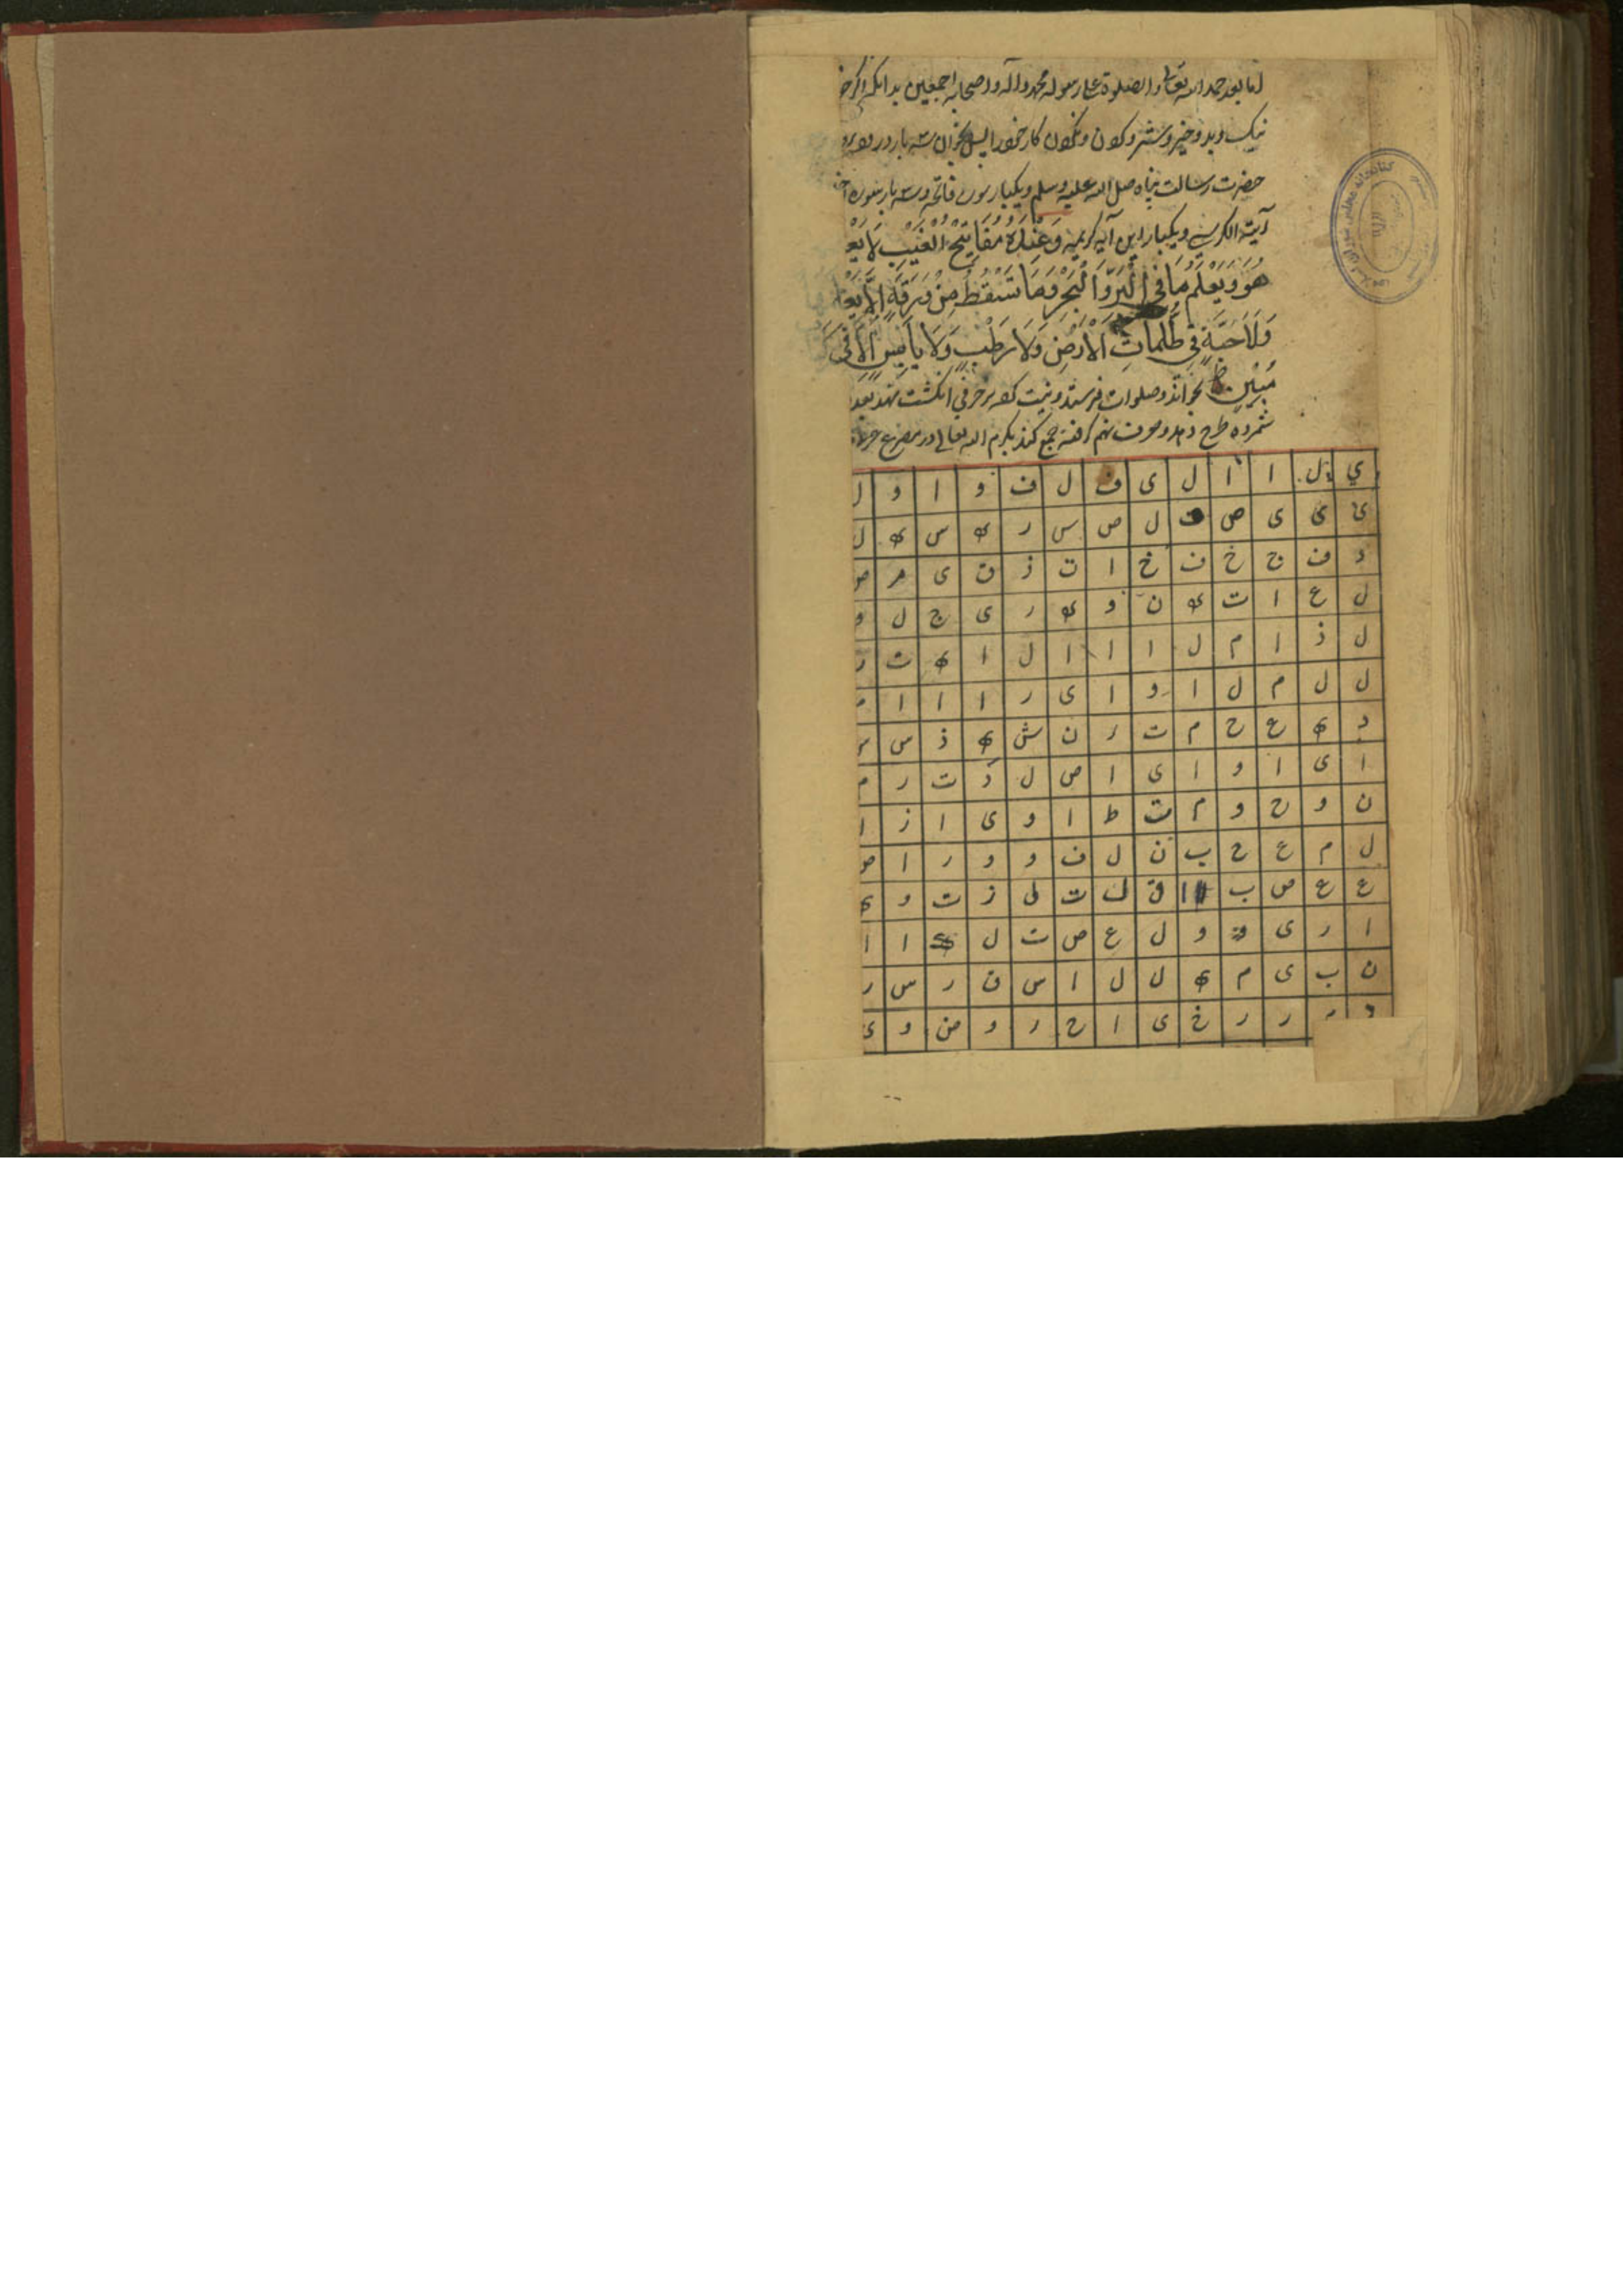 اما بعد حمد الله تعالی والصلوة علی رسوله محمد وآله واصحابه اجمعین بدانکه اکر
نیک و بد و خیر و شر و کردن و نکردن کار خود را پس بخوان سه بار درود بر
حضرت رسالت پناه صلی الله علیه وسلم ویکبار سوره فاتحه وسه بار سوره
آیت الکرسی ویکبار این آیه کریمه وَعِنْدَهُ مَفَاتِحُ الْغَيْبِ لَا
هُوَ وَيَعْلَمُ مَا فِي الْبَرِّ وَالْبَحْرِ وَمَا تَسْقُطُ مِنْ وَرَقَةٍ إِلَّا
وَلَا حَبَّةٍ فِي ظُلُمَاتِ الْأَرْضِ وَلَا رَطْبٍ وَلَا يَابِسٍ إِلَّا فِي
مُبِينٍ بخواند وصلوات فرستد ونیت کرده بر حرفی انکشت نهد بعد
شمرده طرح دهد وحرف نهم کرفته جمع کند بکرم الله تعالی در مصرع
ي ل ا ا ل ی ف ل ف و ا و ل
ی ی ی ص ف ل ص س ر ه س ه ل
د ف ج خ ف خ ا ت ز ق ی م
ل ع ا ت ه ن و ه ر ی ج ل و
ل ذ ا م ل ا ا ا ل ا ه ت ر
ل ل م ل ا و ا ی ر ا ا ا م
د ه ع ح م ت ر ن ش ه ذ س
ا ی ا و ا ی ا ص ل د ت ر م
ن و ح و م ت ط ا و ی ا ز ا
ل م ع ح ب ن ل ف و و ر ا ص
ع ع ص ب ا ق ک ت ل ز ت و ی
ا ر ی و ل ع ص ت ل ا ا
ن ب ی م ه ل ل ا س ق ر س ر
ر ر خ ی ا ح ر و ض و ی